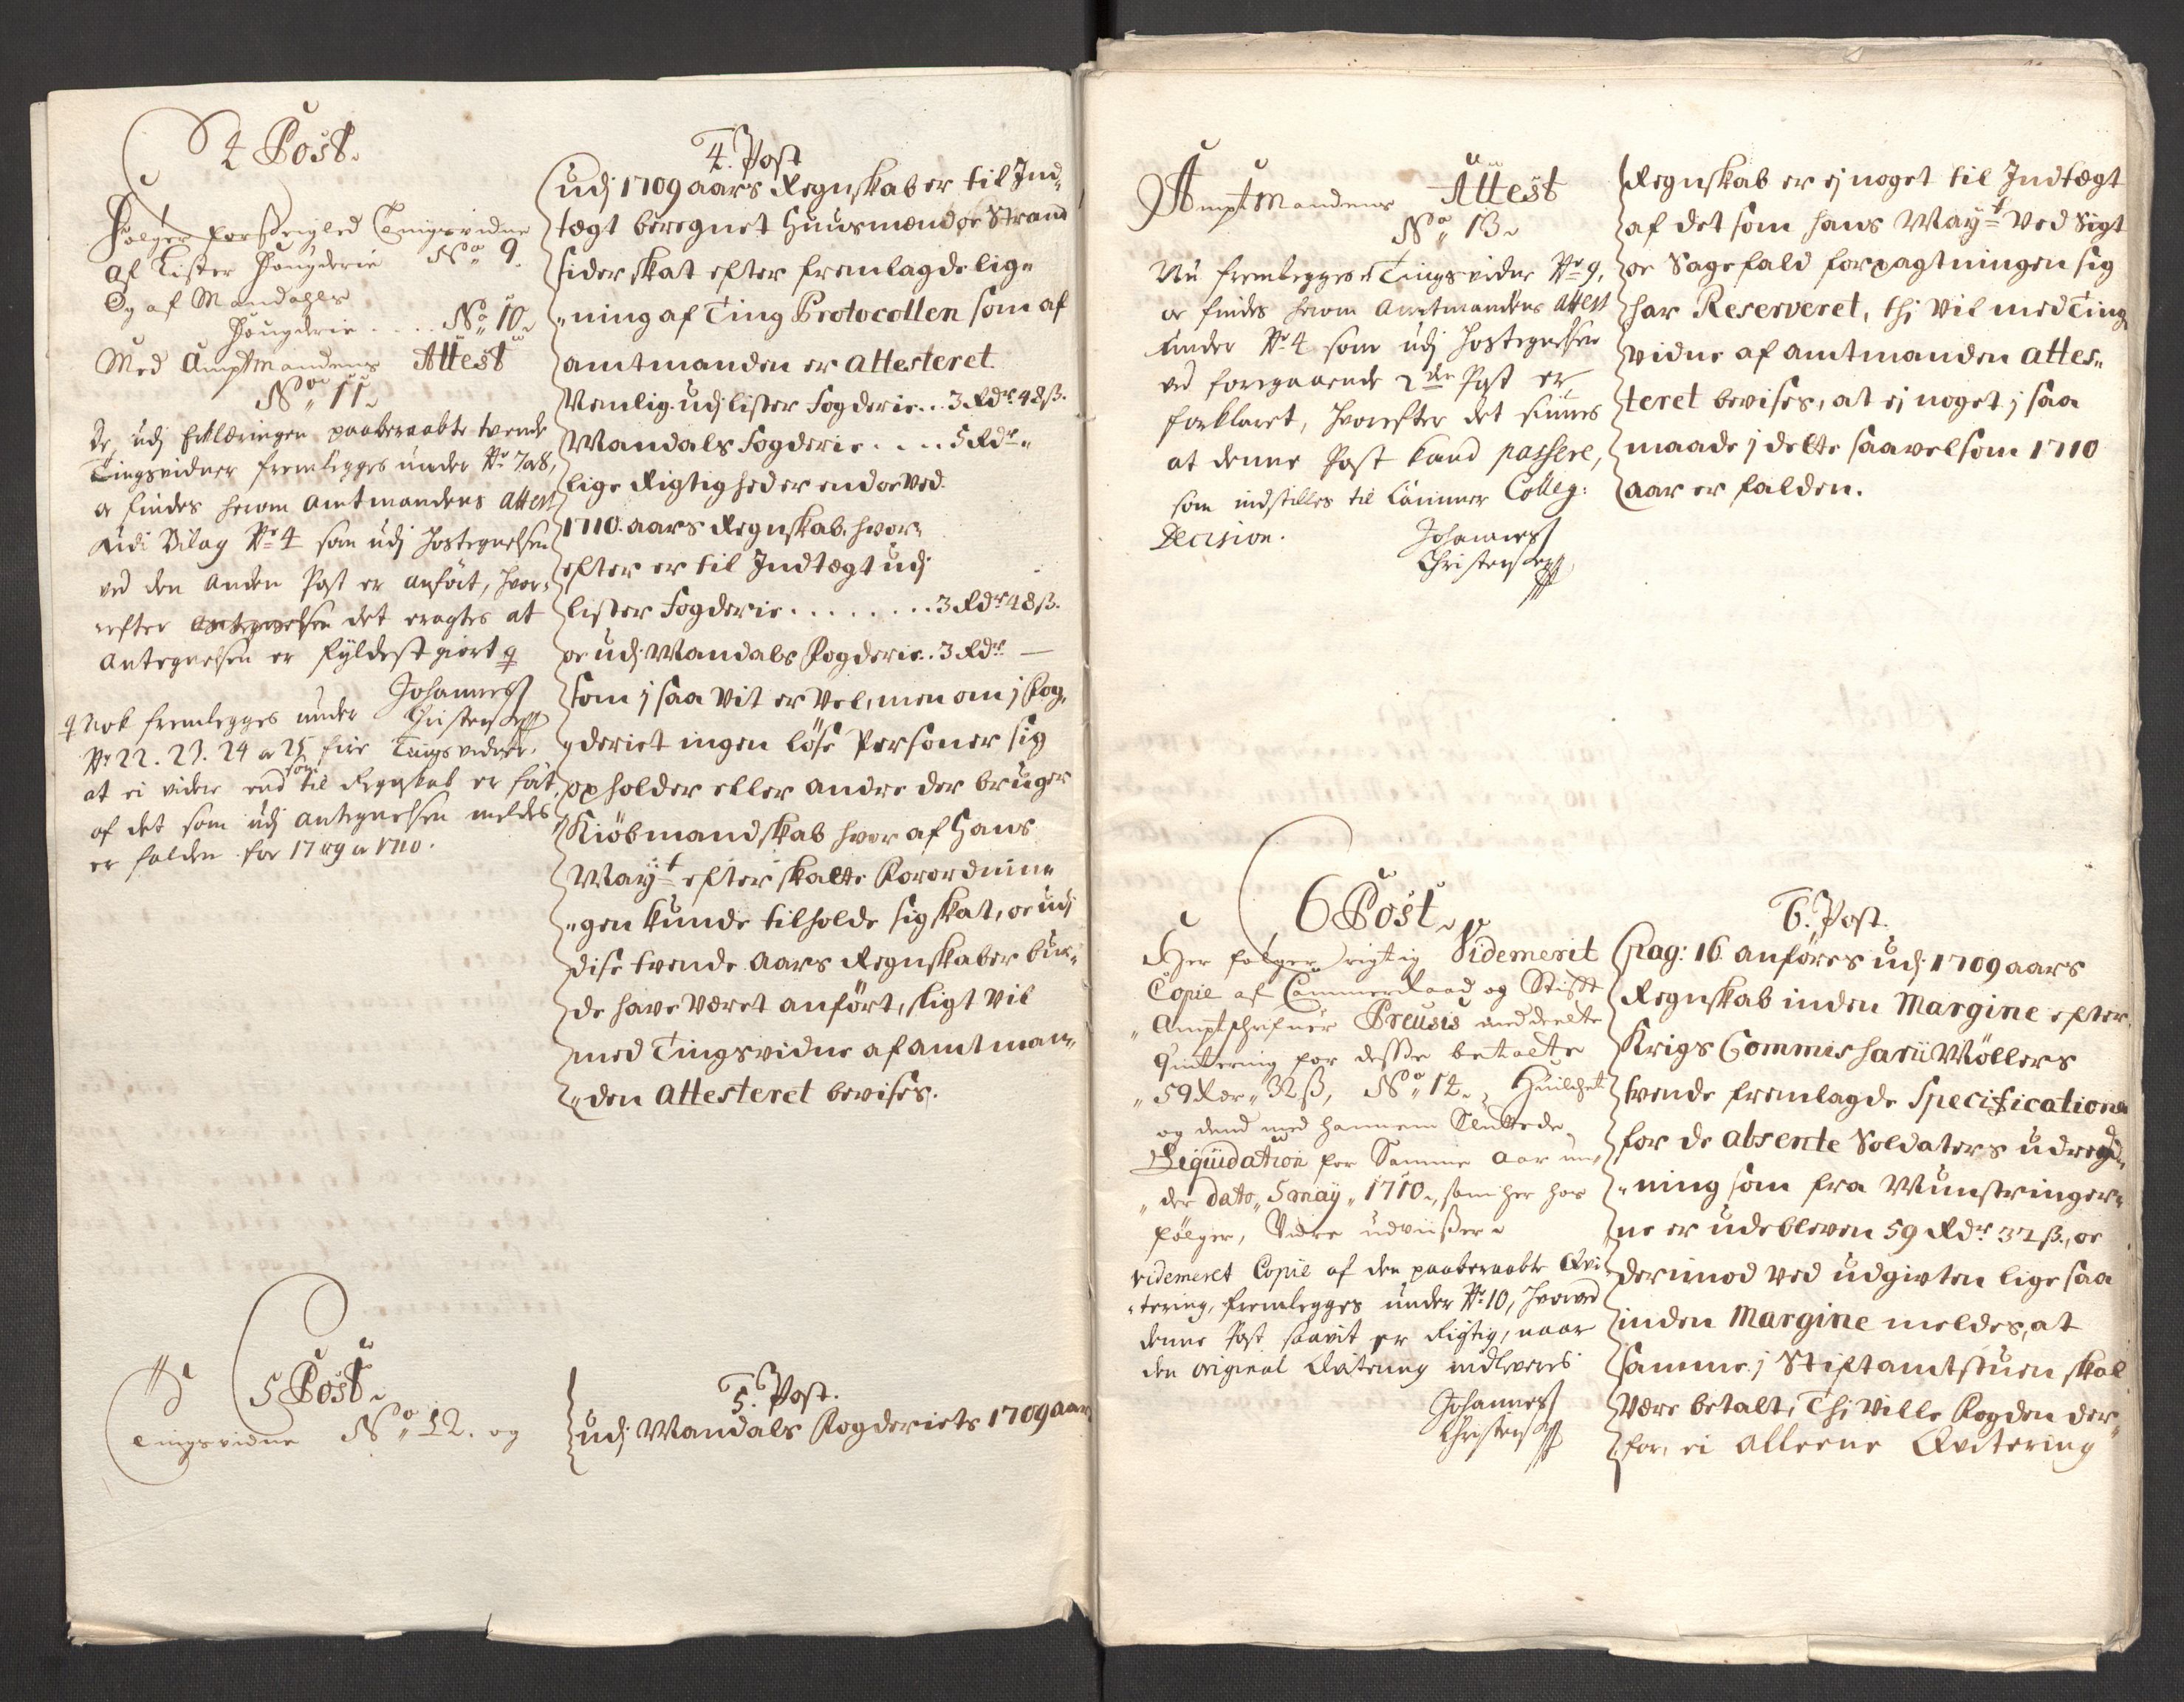 4 Post.
Følger forseigled Tingsvidne
af Lister Fougderie No 9.
Og af Mandahls
Fougderie .... No 10.
Med Amptmandens Attest
No 11.
De udj Erklæringen paaberaabte tvende
Tingsvidner fremlegges under No 7 og 8,
og findes herom Amtmandens Attest
udi Bilag No 4 som udj Hostegnelsen
ved den Anden Post er anført, hvor-
efter det eragtes at
Antegnelsen er fyldestgiort
Johannes
Christensen
Nok fremlegges under
No 22. 23. 24 og 25 fiire Tingsvidner.
at ei videre end som til Regnskab er ført,
af det som udj antegnelsen meldes
er falden for 1709 og 1710.
4. Post
udj 1709 aars Regnskab er til Ind-
tægt beregnet Huusmænd og Strand
sider skat efter fremlagde lig-
ning af Ting Protocollen som af
amtmanden er attesteret.
Nemlig udj Lister Fogderie... 3 Rdr 48 ß.
Mandals Fogderie.... 5 Rdr
lige Rigtighed er end og ved
1710. aars Regnskab, hvor-
efter er til Indtægt udj
Lister Fogderie........ 3 Rdr 48 ß.
og udj Mandals Fogderie.. 3 Rdr —
som j saa vit er vel, men om j Fog-
deriet ingen löse Personer sig
opholder eller andre der bruger
Kiöbmandskab hvor af Hans
Mayt efter skatte Forordnin-
gen kunde tilholde sig skat, og udj
dise tvende aars Regnskaber bur-
de have været anført, sligt vil
med Tingsvidne af amtman-
den attesteret bevises.
5 Post
Tingsvidne No 12. og
5. Post.
udj Mandals Fogderiets 1709 aars
AmptMandens Attest
No 13.
Nu fremlegges Tingsvidne No 9,
og findes herom Amtmandens Attest
under No 4 som udj Hostegnelsen
ved foregaaende 2den Post er
forklaret, hvorefter det siunes
at denne Post kand passere,
som indstilles til Cammer Colleg:
Decision.
Johannes
Christensen
Regnskab er ej noget til Indtægt
af det som hans Mayt ved Sigt
og Sagefald forpagtningen sig
har Reserveret, thi vil med Ting
vidne af amtmanden attes-
teret bevises, at ej noget j saa
maade j dette saavelsom 1710
aar er falden.
6 Post
Her følger rigtig Videmerit
Copie af CammerRaad og Stift
Amptschrifuer Preusis meddeelte
Quittering for desse betalte
59 Rdr 32 ß, No 14. Huilchet
og dend med hannem Sluttede
Liquidation for Samme Aar un-
der dato 5 may 1710, som her hos
følger, Vidre udviisser
videmeret Copie af den paaberaabte Qvi-
tering, fremlegges under No 10, hvorved
denne Post saavit er Rigtig, naar
den original Qvitering indleveres
Johannes
Christensen
6. Post.
Pag: 16 anföres udj 1709 aars
Regnskab inden Margine efter
Krigs Commissarii Möllers
tvende fremlagde Specificationer
for de absente Soldaters udred-
ning som fra Munstringer-
ne er udebleven 59 Rdr 32 ß., og
derimod ved udgivten lige saa
inden Margine meldes, at
samme j Stiftamtstuen skal
være betalt, Thi ville Fogden der-
for, ei alleene Qvitering